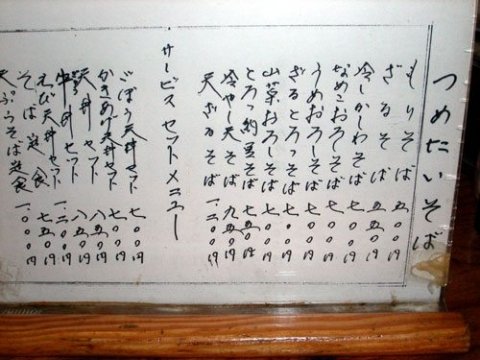 つめたいそば
もりそば 五〇〇円
ざるそば 五五〇円
冷しかしわそば 七〇〇円
なめこおろしそば 七〇〇円
うめおろしそば 七〇〇円
ざるとろろそば 七〇〇円
山菜おろしそば 七〇〇円
とろろ納豆そば 七五〇円
冷やし天そば 九五〇円
天ざるそば 一、二〇〇円
サービスセットメニュー
ごぼう天丼セット 七〇〇円
かきあげ天丼セット 七五〇円
天丼セット 八五〇円
牛丼セット 八五〇円
えび天丼セット 一、二〇〇円
そば定食 七五〇円
天ぷらそば定食 一、〇〇〇円